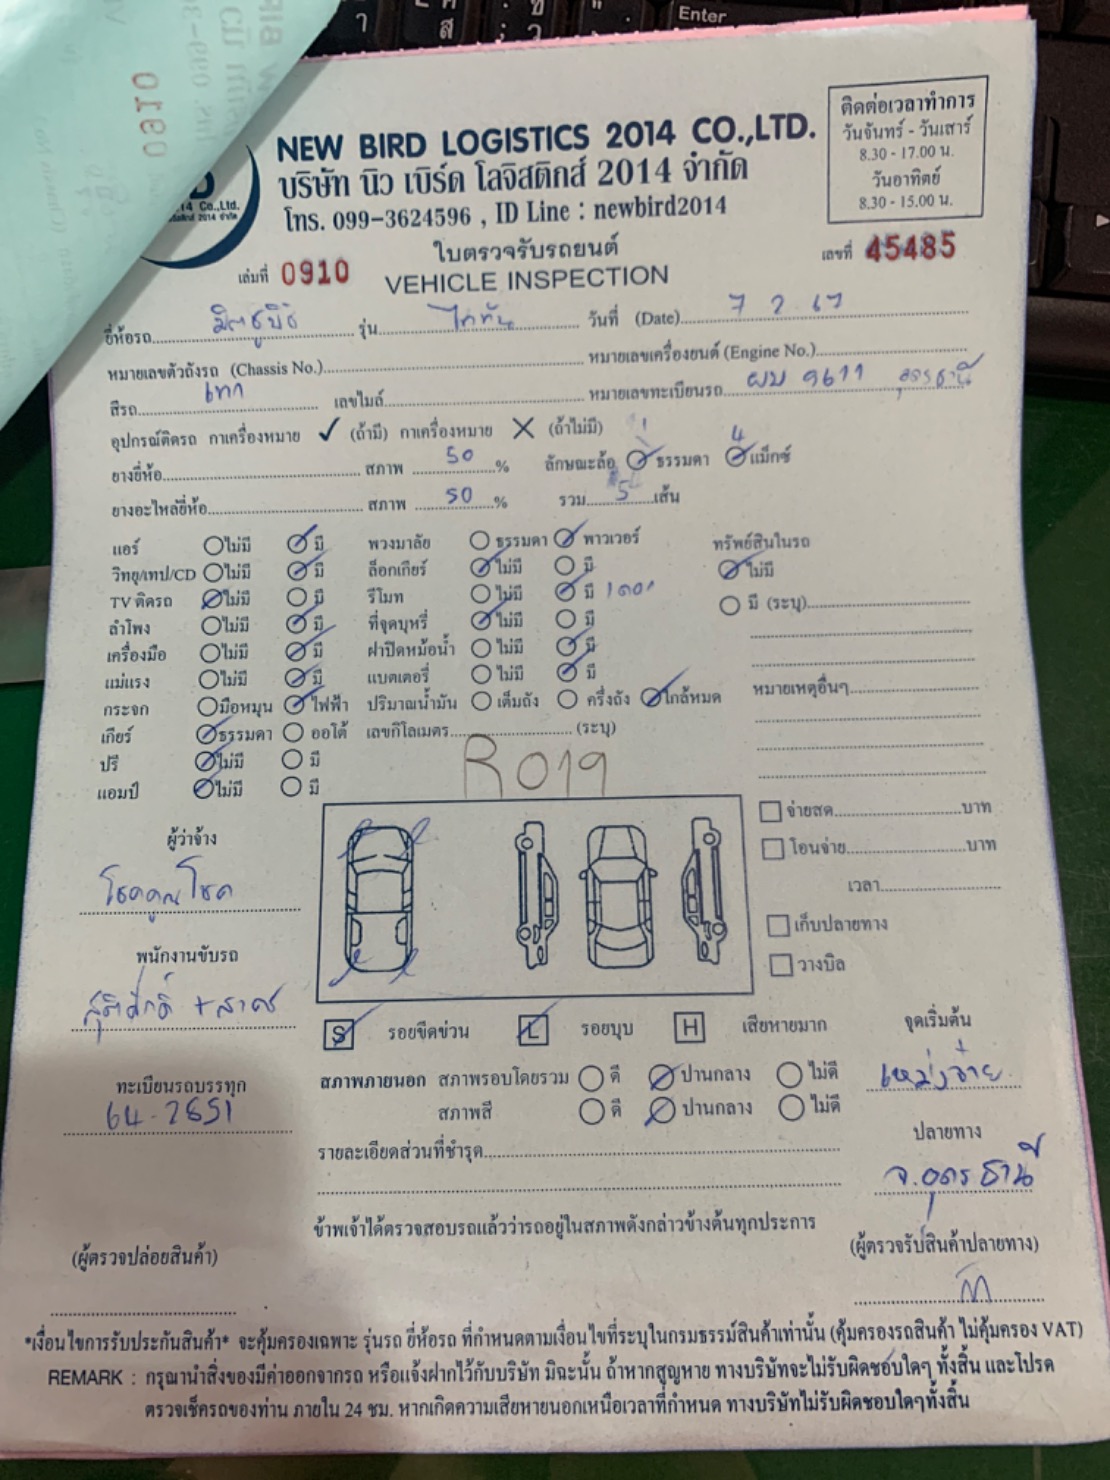 Enter
0910
4 Co.,Ltd.
NEW BIRD LOGISTICS 2014 CO.,LTD.
บริษัท นิว เบิร์ด โลจิสติกส์ 2014 จำกัด
โทร. 099-3624596 , ID Line : newbird2014
ติดต่อเวลาทำการ
วันจันทร์ - วันเสาร์
8.30 - 17.00 น.
วันอาทิตย์
8.30 - 15.00 น.
ใบตรวจรับรถยนต์
เล่มที่ 0910 VEHICLE INSPECTION เลขที่ 45485
ยี่ห้อรถ มิตซูบิชิ รุ่น ไททัน วันที่ (Date) 7 2 67
หมายเลขตัวถังรถ (Chassis No.) หมายเลขเครื่องยนต์ (Engine No.)
สีรถ เทา เลขไมล์ หมายเลขทะเบียนรถ ผม 9611 อุดรธานี
อุปกรณ์ติดรถ กาเครื่องหมาย ✓ (ถ้ามี) กาเครื่องหมาย ✕ (ถ้าไม่มี)
ยางยี่ห้อ สภาพ 50 % ลักษณะล้อ 1 ธรรมดา 4 แม็กซ์
ยางอะไหล่ยี่ห้อ สภาพ 50 % รวม 5 เส้น
แอร์ ไม่มี มี พวงมาลัย ธรรมดา พาวเวอร์ ทรัพย์สินในรถ
วิทยุ/เทป/CD ไม่มี มี ล็อกเกียร์ ไม่มี มี ไม่มี
TV ติดรถ ไม่มี มี รีโมท ไม่มี มี มี (ระบุ)
ลำโพง ไม่มี มี ที่จุดบุหรี่ ไม่มี มี
เครื่องมือ ไม่มี มี ฝาปิดหม้อน้ำ ไม่มี มี
แม่แรง ไม่มี มี แบตเตอรี่ ไม่มี มี หมายเหตุอื่นๆ
กระจก มือหมุน ไฟฟ้า ปริมาณน้ำมัน เต็มถัง ครึ่งถัง ใกล้หมด
เกียร์ ธรรมดา ออโต้ เลขกิโลเมตร (ระบุ)
ปรี ไม่มี มี
แอมป์ ไม่มี มี
R019
จ่ายสด บาท
โอนจ่าย บาท
เวลา
เก็บปลายทาง
วางบิล
ผู้ว่าจ้าง
โชคคูณโชค
พนักงานขับรถ
ทะเบียนรถบรรทุก
64-2851
S รอยขีดข่วน L รอยบุบ H เสียหายมาก
สภาพภายนอก สภาพรอบโดยรวม ดี ปานกลาง ไม่ดี
สภาพสี ดี ปานกลาง ไม่ดี
รายละเอียดส่วนที่ชำรุด
จุดเริ่มต้น
ปลายทาง
จ.อุดรธานี
ข้าพเจ้าได้ตรวจสอบรถแล้วว่ารถอยู่ในสภาพดังกล่าวข้างต้นทุกประการ
(ผู้ตรวจปล่อยสินค้า) (ผู้ตรวจรับสินค้าปลายทาง)
*เงื่อนไขการรับประกันสินค้า* จะคุ้มครองเฉพาะ รุ่นรถ ยี่ห้อรถ ที่กำหนดตามเงื่อนไขที่ระบุในกรมธรรม์สินค้าเท่านั้น (คุ้มครองรถสินค้า ไม่คุ้มครอง VAT)
REMARK : กรุณานำสิ่งของมีค่าออกจากรถ หรือแจ้งฝากไว้กับบริษัท มิฉะนั้น ถ้าหากสูญหาย ทางบริษัทจะไม่รับผิดชอบใดๆ ทั้งสิ้น และโปรด
ตรวจเช็ครถของท่าน ภายใน 24 ชม. หากเกิดความเสียหายนอกเหนือเวลาที่กำหนด ทางบริษัทไม่รับผิดชอบใดๆทั้งสิ้น